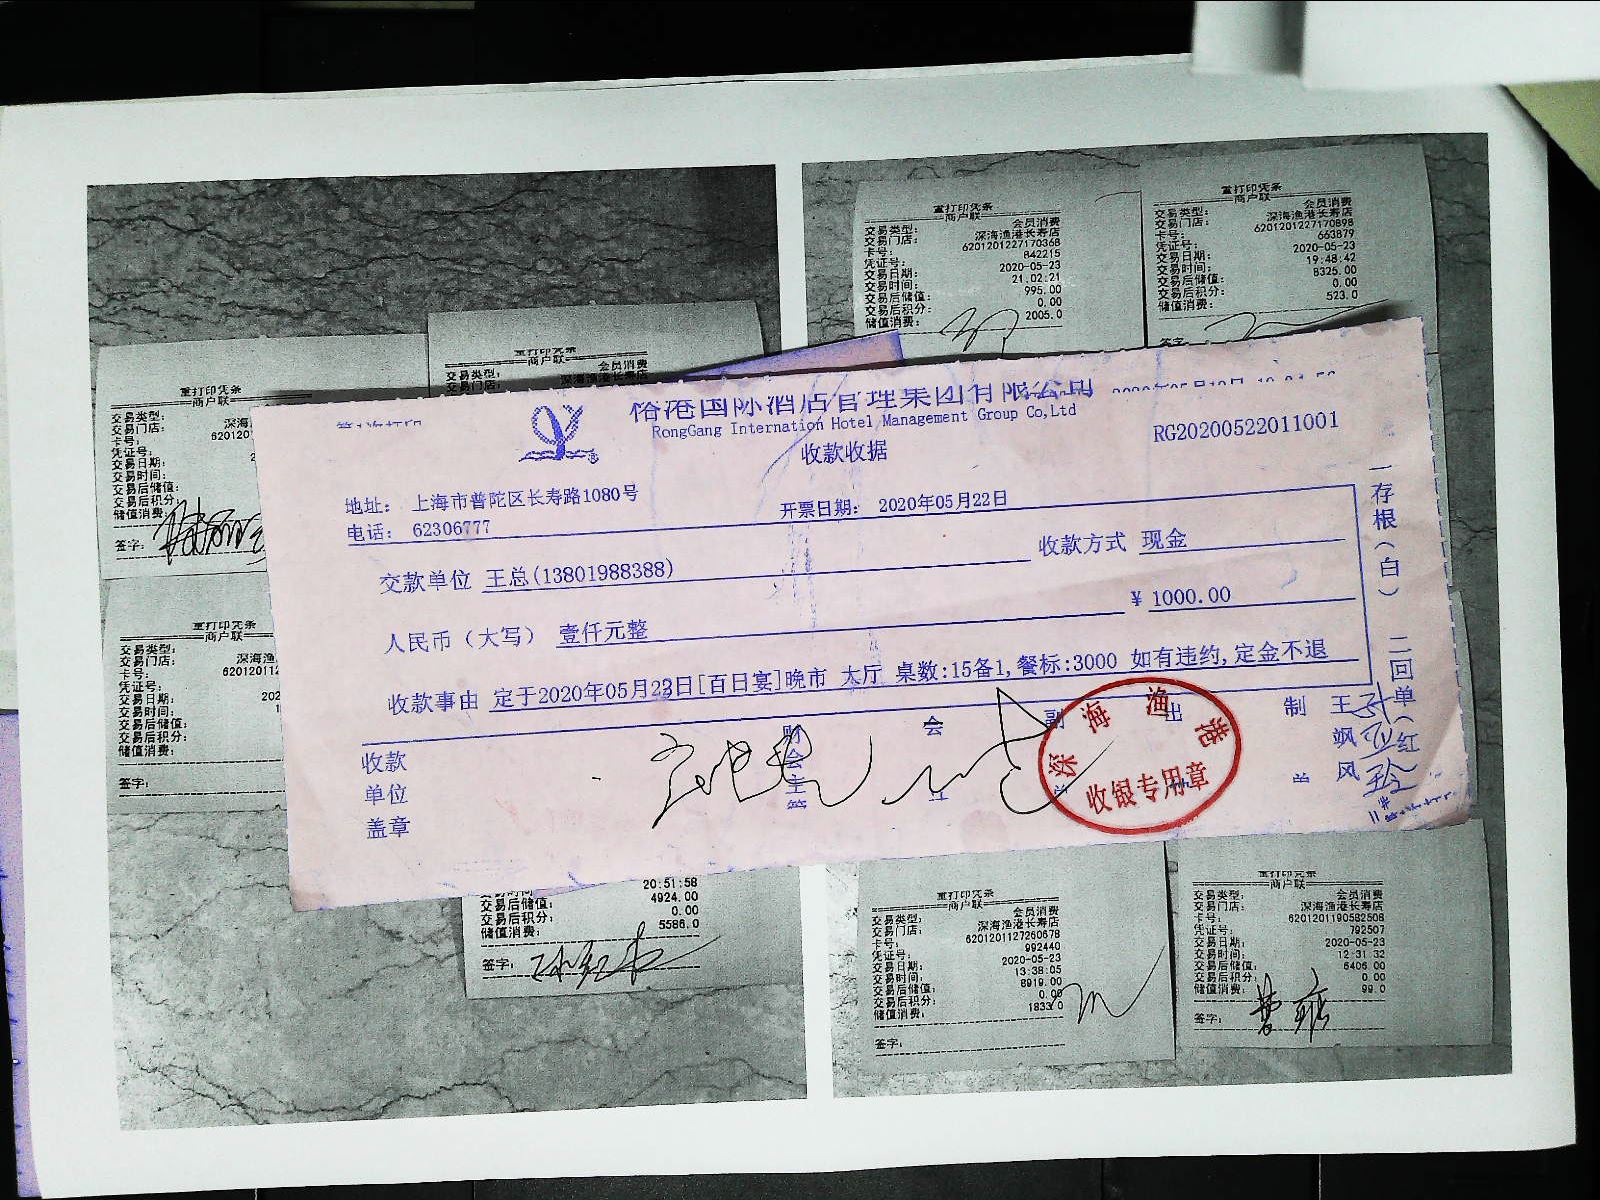 重打印凭条
商户联
交易类型:
交易门店: 深海
卡号: 620120
凭证号:
交易日期: 2
交易时间:
交易后储值:
交易后积分:
储值消费:
签字:
重打印凭条
商户联
交易类型: 会员消费
交易门店: 深海渔港长寿店
重打印凭条
商户联
交易类型: 会员消费
交易门店: 深海渔港长寿店
卡号: 6201201227170368
凭证号: 842215
交易日期: 2020-05-23
交易时间: 21:02:21
交易后储值: 995.00
交易后积分: 0.00
储值消费: 2005.0
重打印凭条
商户联
交易类型: 会员消费
交易门店: 深海渔港长寿店
卡号: 6201201227170898
凭证号: 663879
交易日期: 2020-05-23
交易时间: 19:48:42
交易后储值: 8325.00
交易后积分: 0.00
储值消费: 523.0
签字:
榕港国际酒店管理集团有限公司
RongGang Internation Hotel Management Group Co,Ltd
收款收据
RG20200522011001
地址: 上海市普陀区长寿路1080号
电话: 62306777
开票日期: 2020年05月22日
交款单位 王总(13801988388)
收款方式 现金
人民币(大写) 壹仟元整
¥ 1000.00
收款事由 定于2020年05月23日[百日宴]晚市 大厅 桌数:15备1,餐标:3000 如有违约,定金不退
收款
单位
盖章
财会主管
会
副
出
制
王飒风
深海渔港
收银专用章
一存根(白) 二回单(红)
重打印凭条
商户联
交易类型:
交易门店: 深海
卡号: 62012011
凭证号:
交易日期: 202
交易时间: 1
交易后储值:
交易后积分:
储值消费:
签字:
交易时间: 20:51:58
交易后储值: 4924.00
交易后积分: 0.00
储值消费: 5586.0
签字:
重打印凭条
商户联
交易类型: 会员消费
交易门店: 深海渔港长寿店
卡号: 6201201127260678
凭证号: 992440
交易日期: 2020-05-23
交易时间: 13:38:05
交易后储值: 8919.00
交易后积分: 0.00
储值消费: 1833.0
签字:
重打印凭条
商户联
交易类型: 会员消费
交易门店: 深海渔港长寿店
卡号: 6201201190582508
凭证号: 792507
交易日期: 2020-05-23
交易时间: 12:31:32
交易后储值: 6406.00
交易后积分: 0.00
储值消费: 99.0
签字: